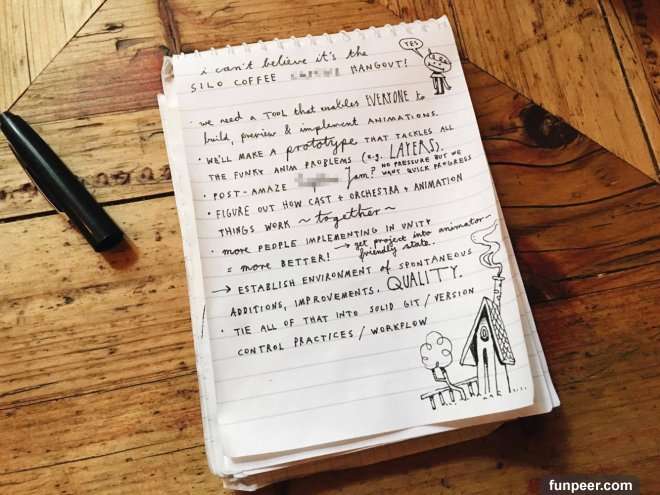 i can't believe it's the
SILO COFFEE HANGOUT!
YES
· WE NEED A TOOL that enables EVERYONE to
build, preview & implement ANIMATIONS.
· WE'LL MAKE A prototype THAT TACKLES ALL
THE FUNKY ANIM PROBLEMS (e.g. LAYERS).
· POST-AMAZE Jam? NO PRESSURE BUT WE
WANT QUICK PROGRESS
· FIGURE OUT HOW CAST + ORCHESTRA + ANIMATION
THINGS WORK ~together~
· MORE PEOPLE IMPLEMENTING IN UNITY
= MORE BETTER! → get project into animator-
friendly state.
→ ESTABLISH ENVIRONMENT OF SPONTANEOUS
ADDITIONS, IMPROVEMENTS. QUALITY.
· TIE ALL OF THAT INTO SOLID GIT / VERSION
CONTROL PRACTICES / WORKFLOW
funpeer.com